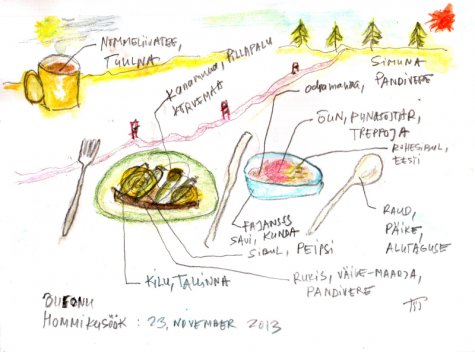 NÕMMELIIVATEE,
TUULNA
KANAMUNA, PILLAPALU
KÕRVEMAA
SIMUNA
PANDIVERE
odramanna,
ÕUN, PUNASÕSTAR,
TREPPOJA
ROHESIBUL,
EESTI
FAJANSS
SAVI, KUNDA
SIBUL, PEIPSI
RAUD,
PÄIKE,
ALUTAGUSE
KILU, TALLINNA
RUKIS, VÄIKE-MAARJA,
PANDIVERE
HOMMIKUSÖÖK : 23, NOVEMBER 2013